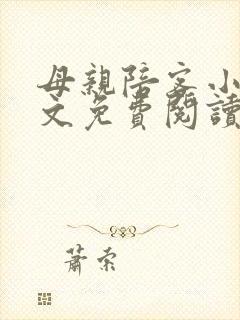 母親陪客小
文免費閱讀
蕭索